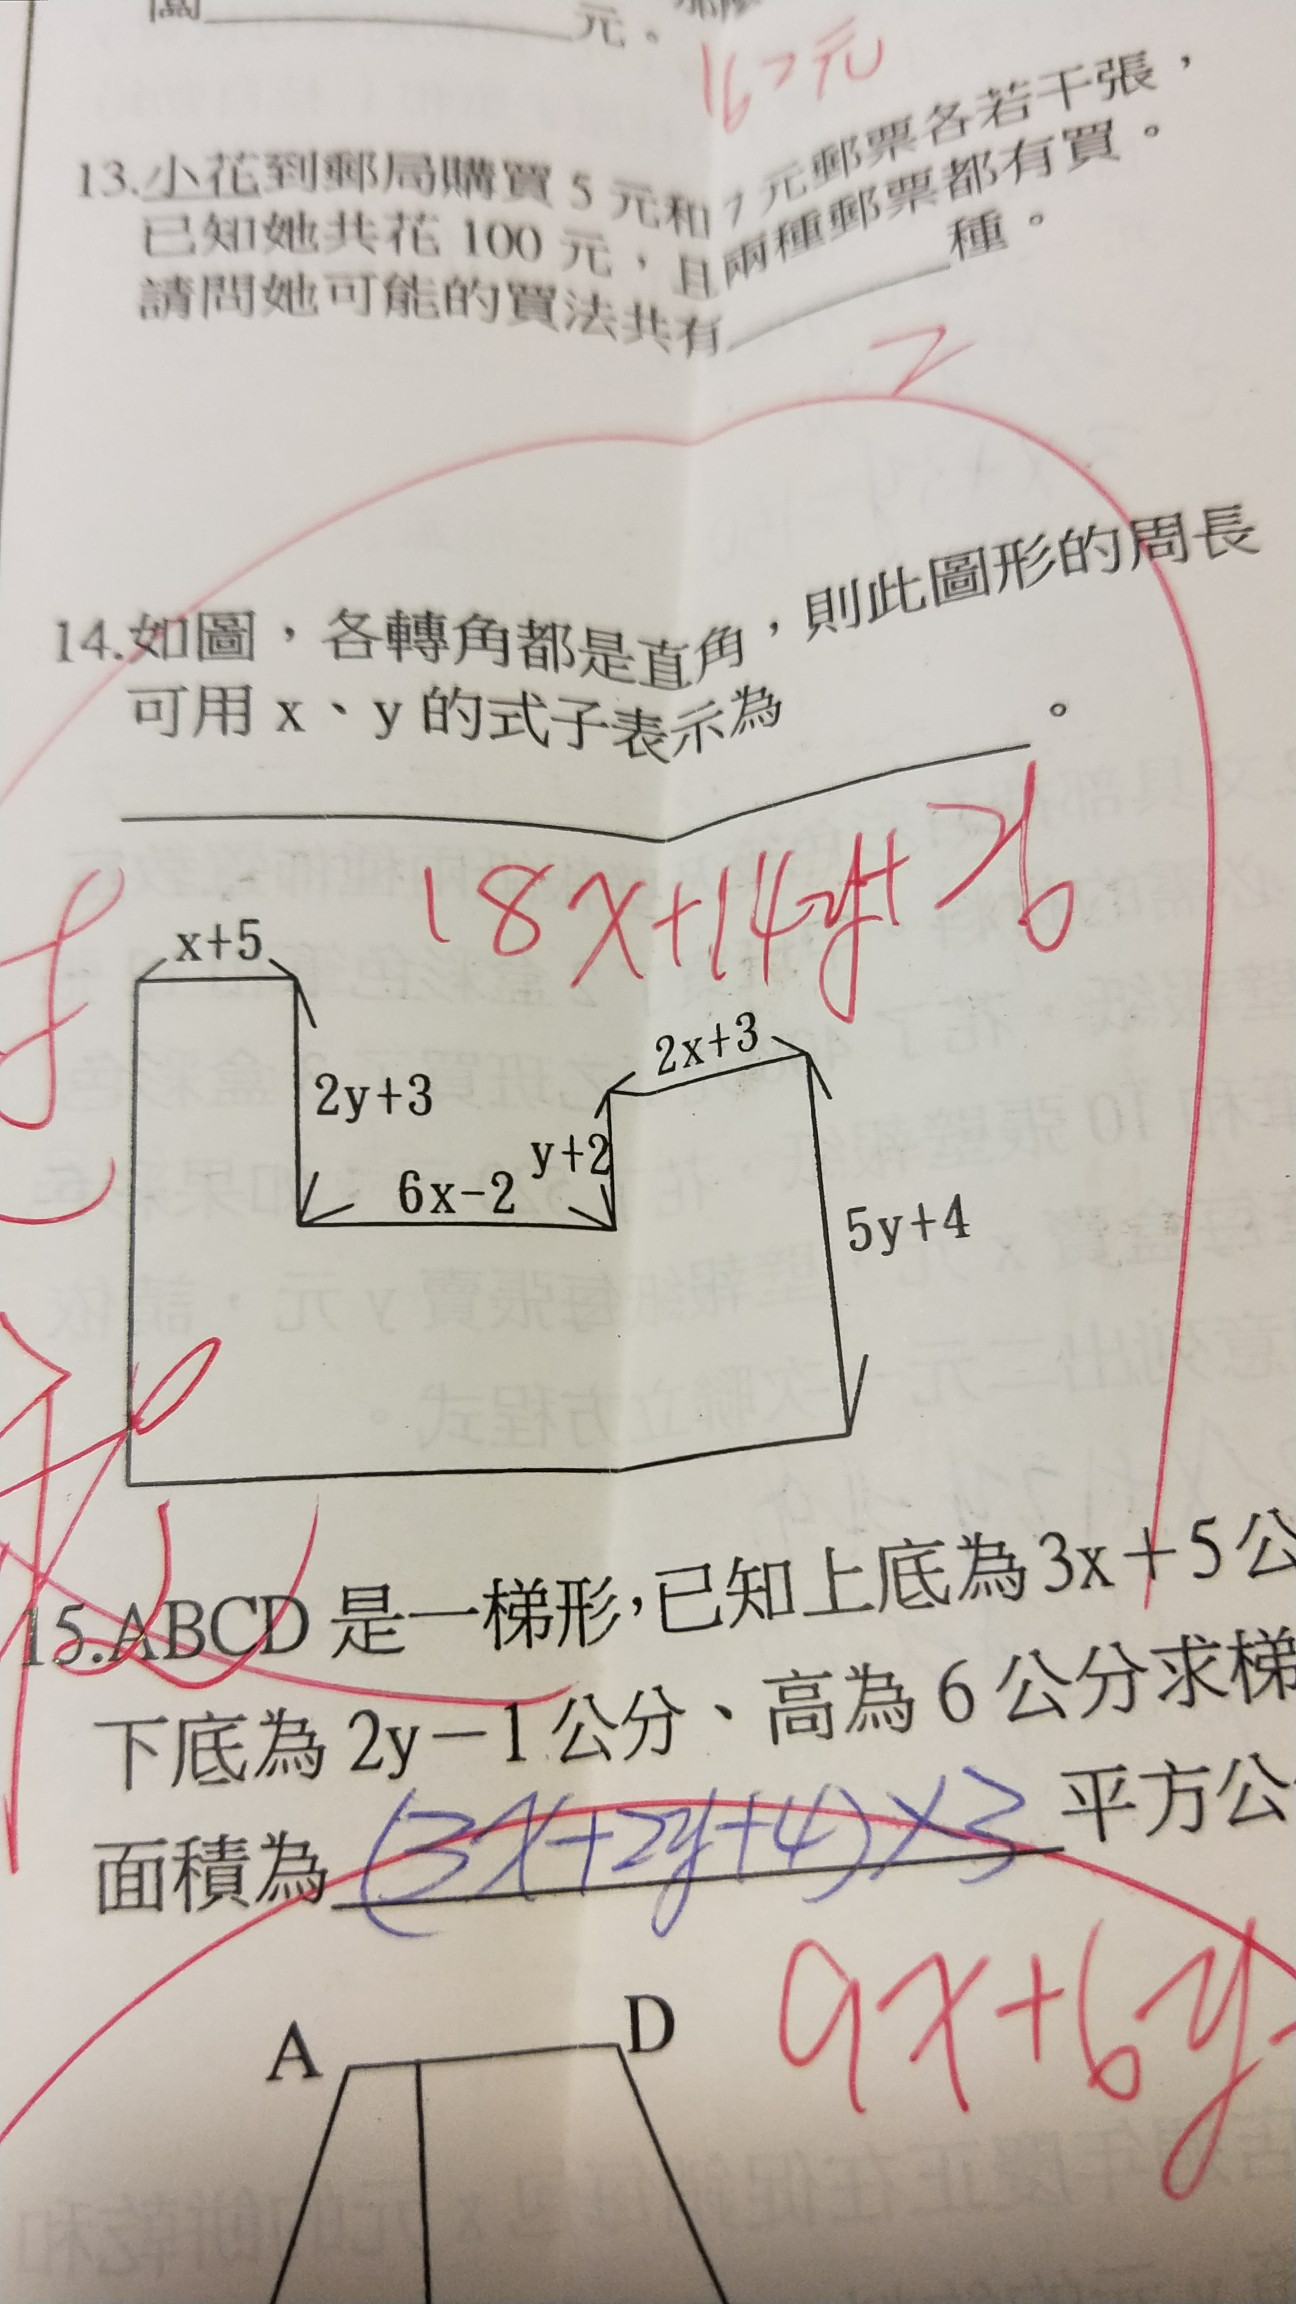 元。
16元
13.小花到郵局購買 5 元和 7 元郵票各若干張，
已知她共花 100 元，且兩種郵票都有買。
請問她可能的買法共有＿＿＿＿種。
2
14.如圖，各轉角都是直角，則此圖形的周長
可用 x、y 的式子表示為＿＿＿＿。
18x+14y+26
x+5
2x+3
2y+3
y+2
6x-2
5y+4
15.ABCD 是一梯形，已知上底為 3x＋5 公
下底為 2y－1 公分、高為 6 公分求梯
面積為 (3x+2y+4)×3 平方公
9x+6y
A
D